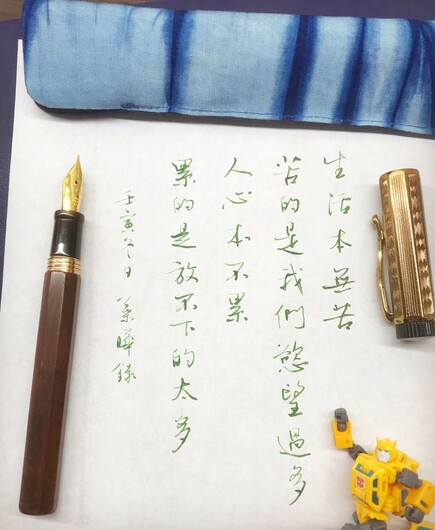 生活本無苦
苦的是我們慾望過多
人心本不累
累的是放不下的太多
壬寅冬日 業曄錄